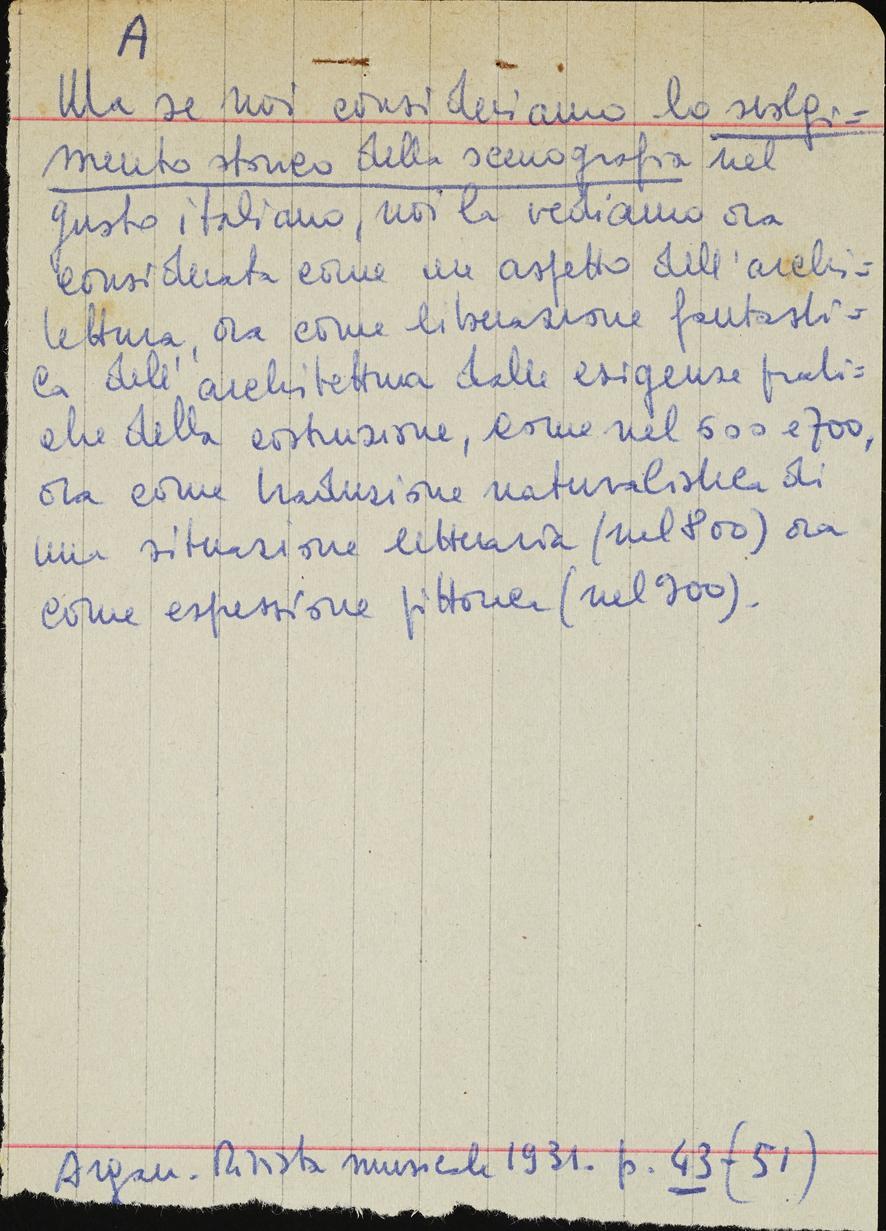 A
Ma se noi consideriamo lo svolgi=
mento storico della scenografia nel
gusto italiano, noi la vediamo ora
considerata come un aspetto dell'archi=
tettura, ora come liberazione fantasti=
ca dell'architettura dalle esigenze prati=
che della costruzione, come nel 600 e 700,
ora come traduzione naturalistica di
una situazione letteraria (nel 800) ora
come espressione pittorica (nel 900).
Argan. Rivista musicale 1931. p. 43-(51)